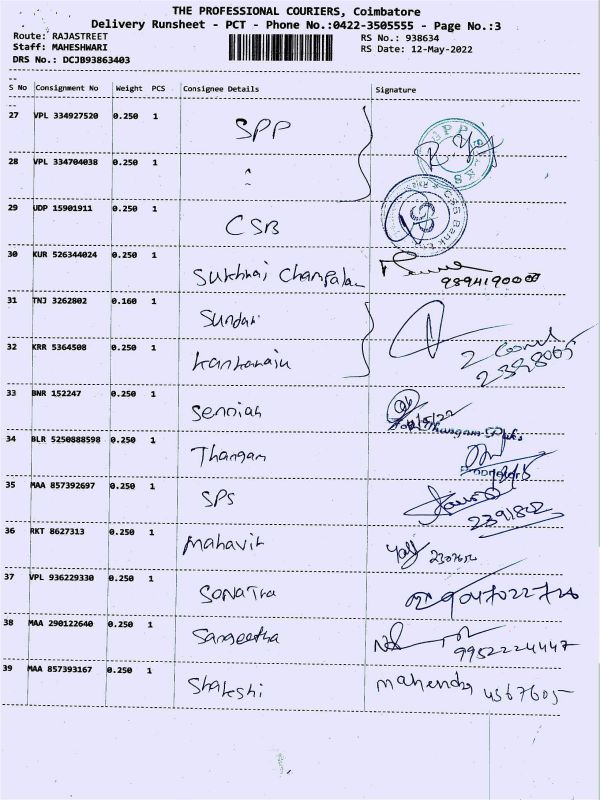 THE PROFESSIONAL COURIERS, Coimbatore
Delivery Runsheet - PCT - Phone No.:0422-3505555 - Page No.:3
Route: RAJASTREET
Staff: MAHESHWARI
DRS No.: DCJB93863403
RS No.: 938634
RS Date: 12-May-2022
S No Consignment No Weight PCS Consignee Details Signature
27 VPL 334927520 0.250 1 SPP
28 VPL 334704038 0.250 1 "
29 UDP 15901911 0.250 1 CSB CSB Bank
30 KUR 526344024 0.250 1
31 TNJ 3262802 0.160 1 Sundari
32 KRR 5364508 0.250 1
33 BNR 152247 0.250 1 Senniah
34 BLR 5250888598 0.250 1 Thangam
35 MAA 857392697 0.250 1 SPS 2391802
36 RKT 8627313 0.250 1 Mahavir
37 VPL 936229330 0.250 1 Sonatra
38 MAA 290122640 0.250 1 Sangeetha 9952224447
39 MAA 857393167 0.250 1 Shakshi Mahendra 4567605